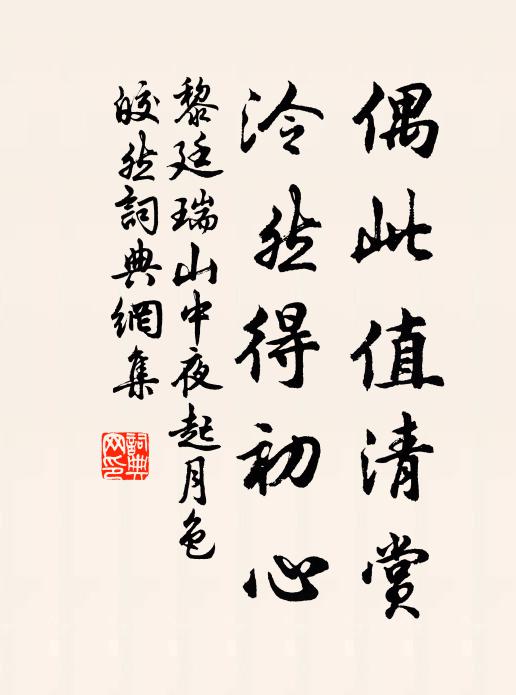 偶此值清賞
泠然得初心
黎廷瑞山中夜起月色
皎然詞典網集
詞典网印